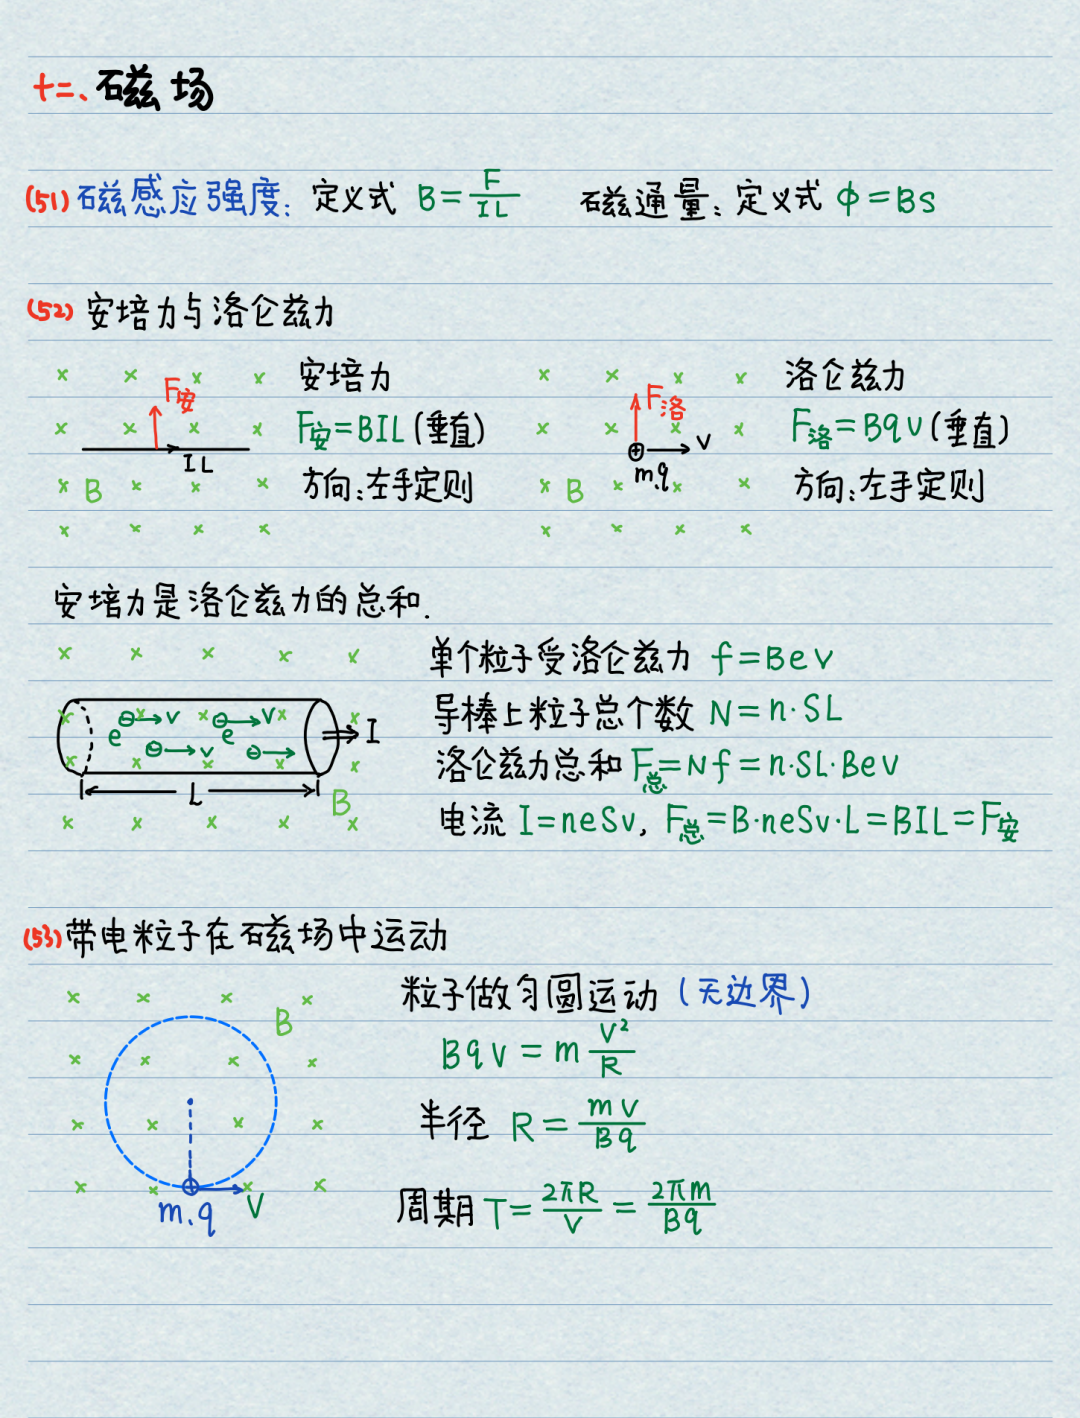 十二、磁场
(51) 磁感应强度: 定义式 B=F/IL 磁通量: 定义式 φ=BS
(52) 安培力与洛仑兹力
F安
IL
B
安培力
F安=BIL(垂直)
方向:左手定则
F洛
V
m.q
B
洛仑兹力
F洛=BqV(垂直)
方向:左手定则
安培力是洛仑兹力的总和.
e ⊖→V e ⊖→V
⊖→V ⊖→
I
L
B
单个粒子受洛仑兹力 f=BeV
导棒上粒子总个数 N=n·SL
洛仑兹力总和 F总=Nf=n·SL·BeV
电流 I=neSv, F总=B·neSv·L=BIL=F安
(53) 带电粒子在磁场中运动
B
m.q
V
粒子做匀圆运动 (无边界)
BqV=mV²/R
半径 R=mV/Bq
周期 T=2πR/V=2πm/Bq